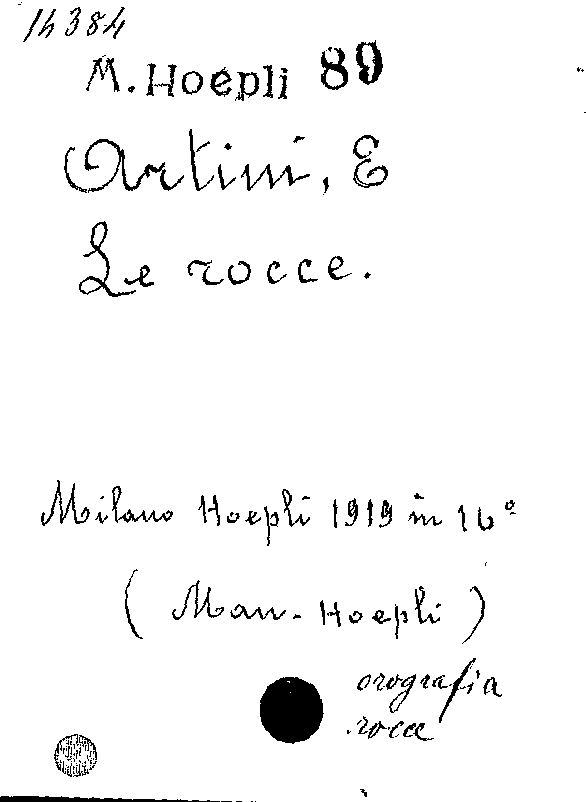 14384
M. Hoepli 89
Artini, E
Le rocce.
Milano Hoepli 1919 in 16°
( Man. Hoepli )
orografia
rocce